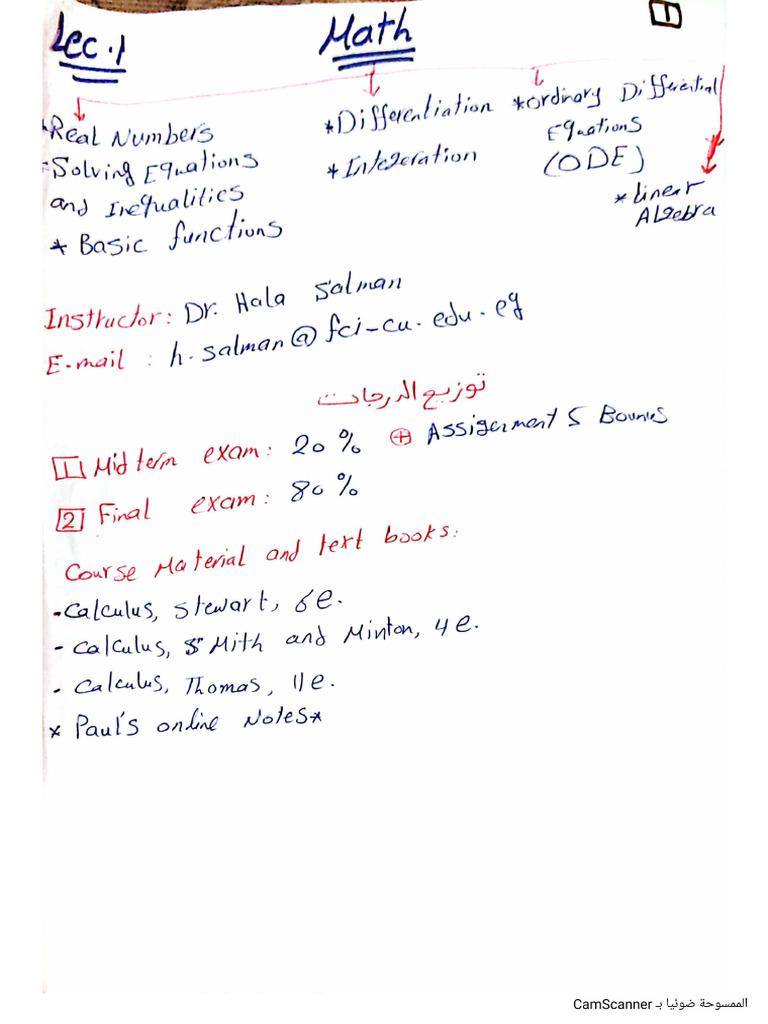 Lec.1
Math
1
* Real Numbers
- Solving Equations
and Inequalities
* Basic functions
* Differentiation
* Integeration
* Ordinary Differential
Equations
(ODE)
* Linear
Algebra
Instructor: Dr. Hala Salman
E-mail : h.salman@fci-cu.edu.eg
توزيع الدرجات
1 Mid term exam: 20% + Assignment 5 Bounus
2 Final exam: 80%
Course Material and text books:
- Calculus, Stewart, 6e.
- Calculus, Smith and Minton, 4e.
- Calculus, Thomas, 11e.
* Paul's online Notes*
الممسوحة ضوئيا بـ CamScanner